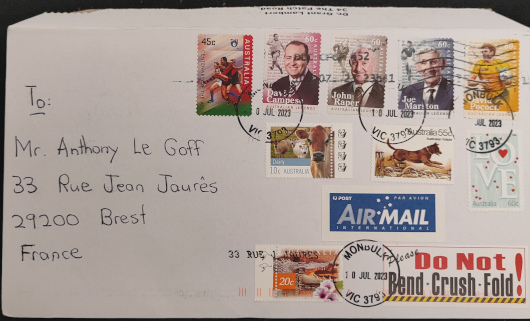 Dr. Grant Lambert
34 The Patch Road
To:
Mr. Anthony Le Goff
33 Rue Jean Jaurès
29200 Brest
France
45c
AUSTRALIA
60c
David Campese
60c
John Raper
60c
Joe Marston
David Pocock
JUL 2023
0 JUL 2023
VIC 3793
MONBULK
VIC 3793
Dairy
10c AUSTRALIA
Australia 55c
LOVE
Australia 60c
POST
PAR AVION
AIR MAIL
INTERNATIONAL
33 RUE J JAURES
20c
MONBULK
10 JUL 2023
VIC 3793
Please
Do Not!
Bend·Crush·Fold!